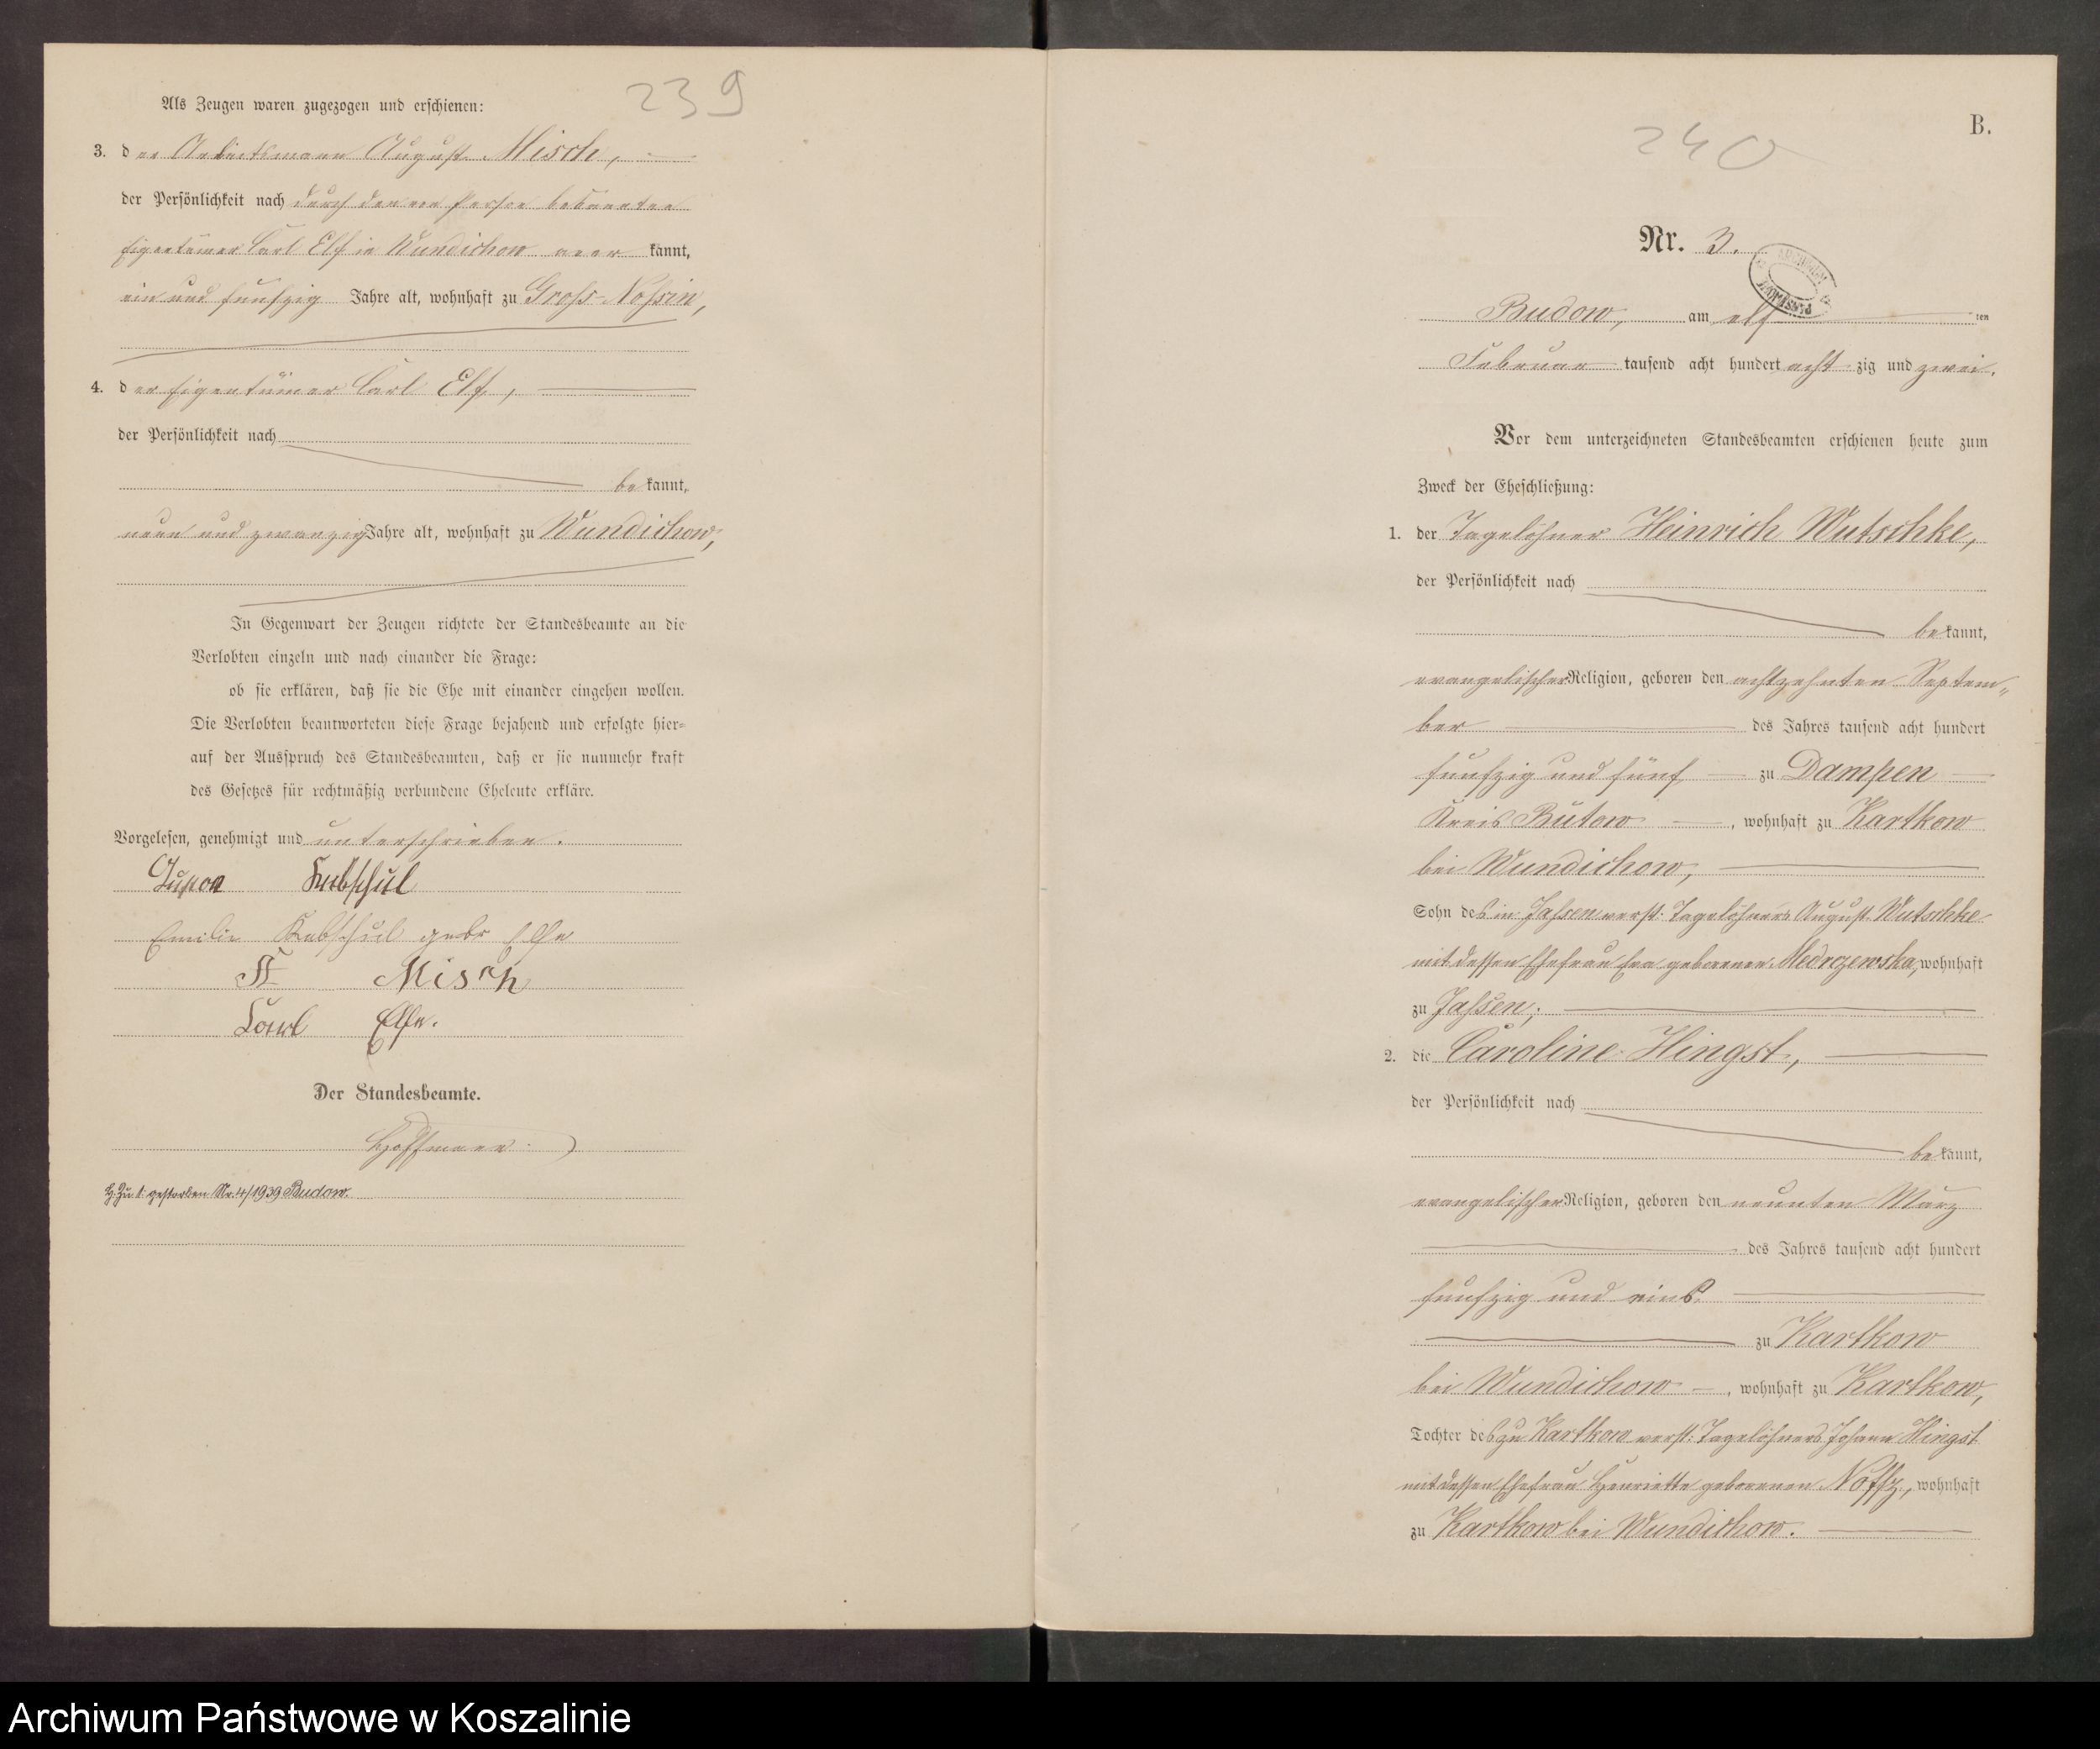 239
Als Zeugen waren zugezogen und erschienen:
3. der Arbeitsmann August Misch,
der Persönlichkeit nach durch den von Person bekannten
Eigentümer Carl Elf in Wundichow aner kannt,
ein und funfzig Jahre alt, wohnhaft zu Gross-Nossin,
4. der Eigentümer Carl Elf,
der Persönlichkeit nach
be kannt,
neun und zwanzig Jahre alt, wohnhaft zu Wundichow,
In Gegenwart der Zeugen richtete der Standesbeamte an die
Verlobten einzeln und nach einander die Frage:
ob sie erklären, daß sie die Ehe mit einander eingehen wollen.
Die Verlobten beantworteten diese Frage bejahend und erfolgte hier-
auf der Ausspruch des Standesbeamten, daß er sie nunmehr kraft
des Gesetzes für rechtmäßig verbundene Eheleute erkläre.
Vorgelesen, genehmigt und unterschrieben.
Kubschul
Emilie Kubschul gebr Elfe
Misch
Carl Elfe.
Der Standesbeamte.
Hoffmann.
H. Zu 1: gestorben Nr. 4/1939 Budow.
240
B.
Nr. 3.
Budow, am elf ten
Februar tausend acht hundert acht zig und zwei.
Vor dem unterzeichneten Standesbeamten erschienen heute zum
Zweck der Eheschließung:
1. der Tagelöhner Heinrich Wutschke,
der Persönlichkeit nach
be kannt,
evangelischer Religion, geboren den achtzehnten Septem„
ber des Jahres tausend acht hundert
funfzig und fünf zu Dampen
Kreis Bütow, wohnhaft zu Kartkow
bei Wundichow,
Sohn des in Jassen verst. Tagelöhners August Wutschke
mit dessen Ehefrau Eva geborenen Medrzewska, wohnhaft
zu Jassen;
2. die Caroline Hingst,
der Persönlichkeit nach
be kannt,
evangelischer Religion, geboren den neunten März
des Jahres tausend acht hundert
funfzig und eins
zu Kartkow
bei Wundichow, wohnhaft zu Kartkow,
Tochter des zu Kartkow verst. Tagelöhners Johann Hingst
mit dessen Ehefrau Henriette geborenen Noffz, wohnhaft
zu Kartkow bei Wundichow.
Archiwum Państwowe w Koszalinie